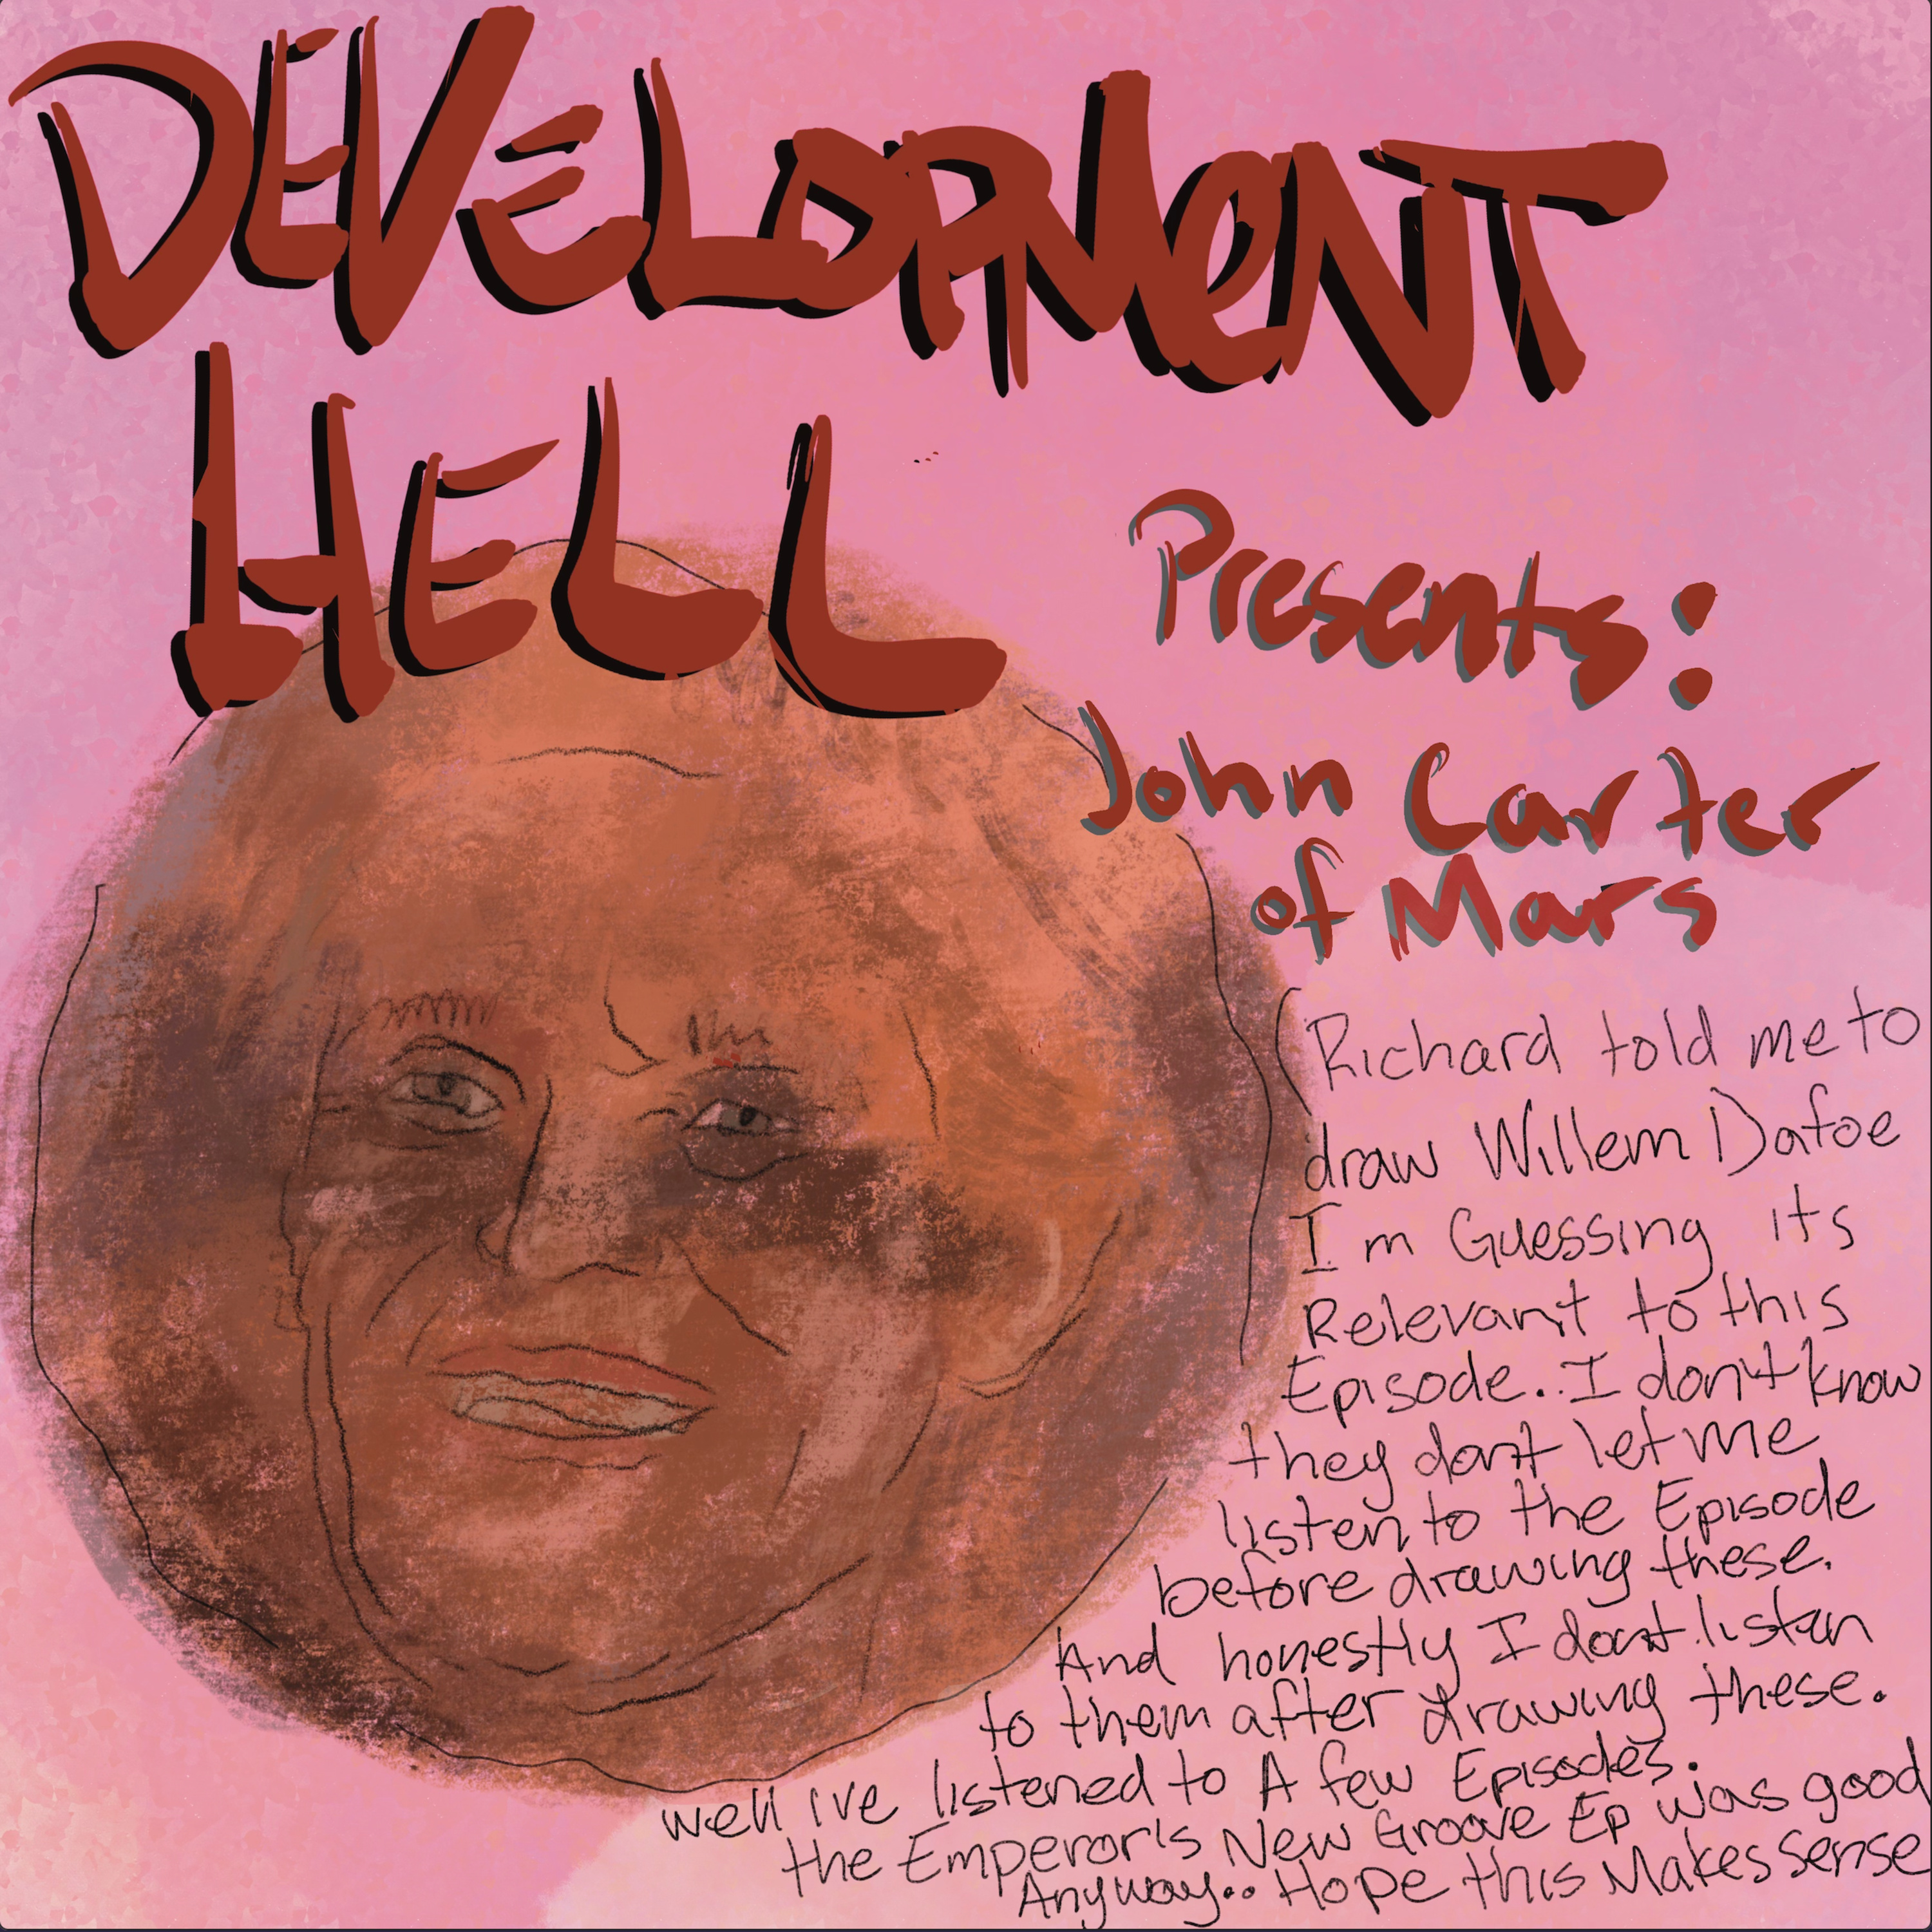 DEVELOPMeNT
HELL
Presents:
John Carter
of Mars
(Richard told me to
draw Willem Dafoe
I'm Guessing its
Relevant to this
Episode.. I don't know
they dont let me
listen to the Episode
before drawing these.
And honestly I dont listen
to them after drawing these.
well ive listened to A few Episodes.
the Emperor's New Groove Ep was good
Anyway.. Hope this Makes sense